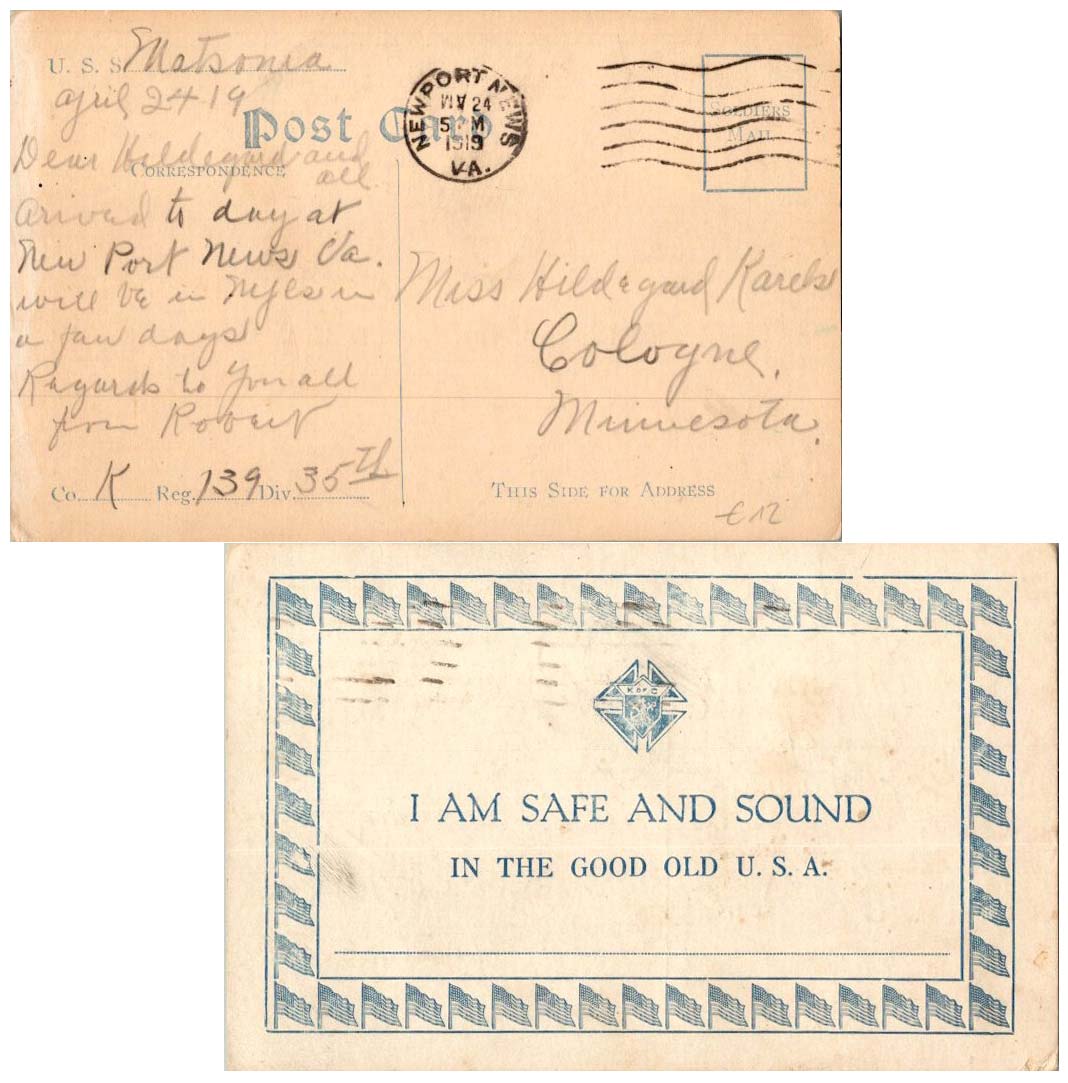 U. S. S. Matsonia
April 24 19
Post Card
Dear Hildegard and
all
CORRESPONDENCE
Arived to day at
New Port News Va.
will be in
a faw days
Regards to You all
from Robert
Co. K Reg. 139 Div. 35th
NEWPORT NEWS
24
5 PM
1919
VA.
SOLDIERS
MAIL
Miss Hildegard
Cologne,
Minnesota.
THIS SIDE FOR ADDRESS
K OF C
I AM SAFE AND SOUND
IN THE GOOD OLD U. S. A.